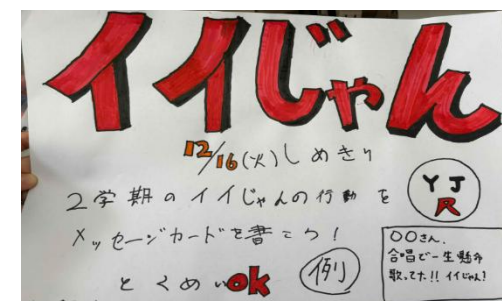 イイじゃん
12/16(火)しめきり
2学期のイイじゃんの行動を
メッセージカードを書こう!
とくめいok
例
YJ
R
〇〇さん、
合唱で一生懸命
歌ってた!! イイじゃん!